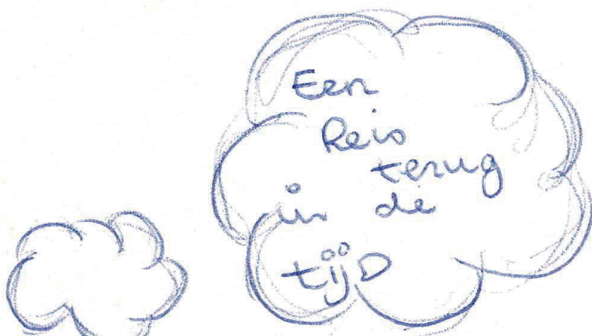 Een
Reis
terug
in de
tijD